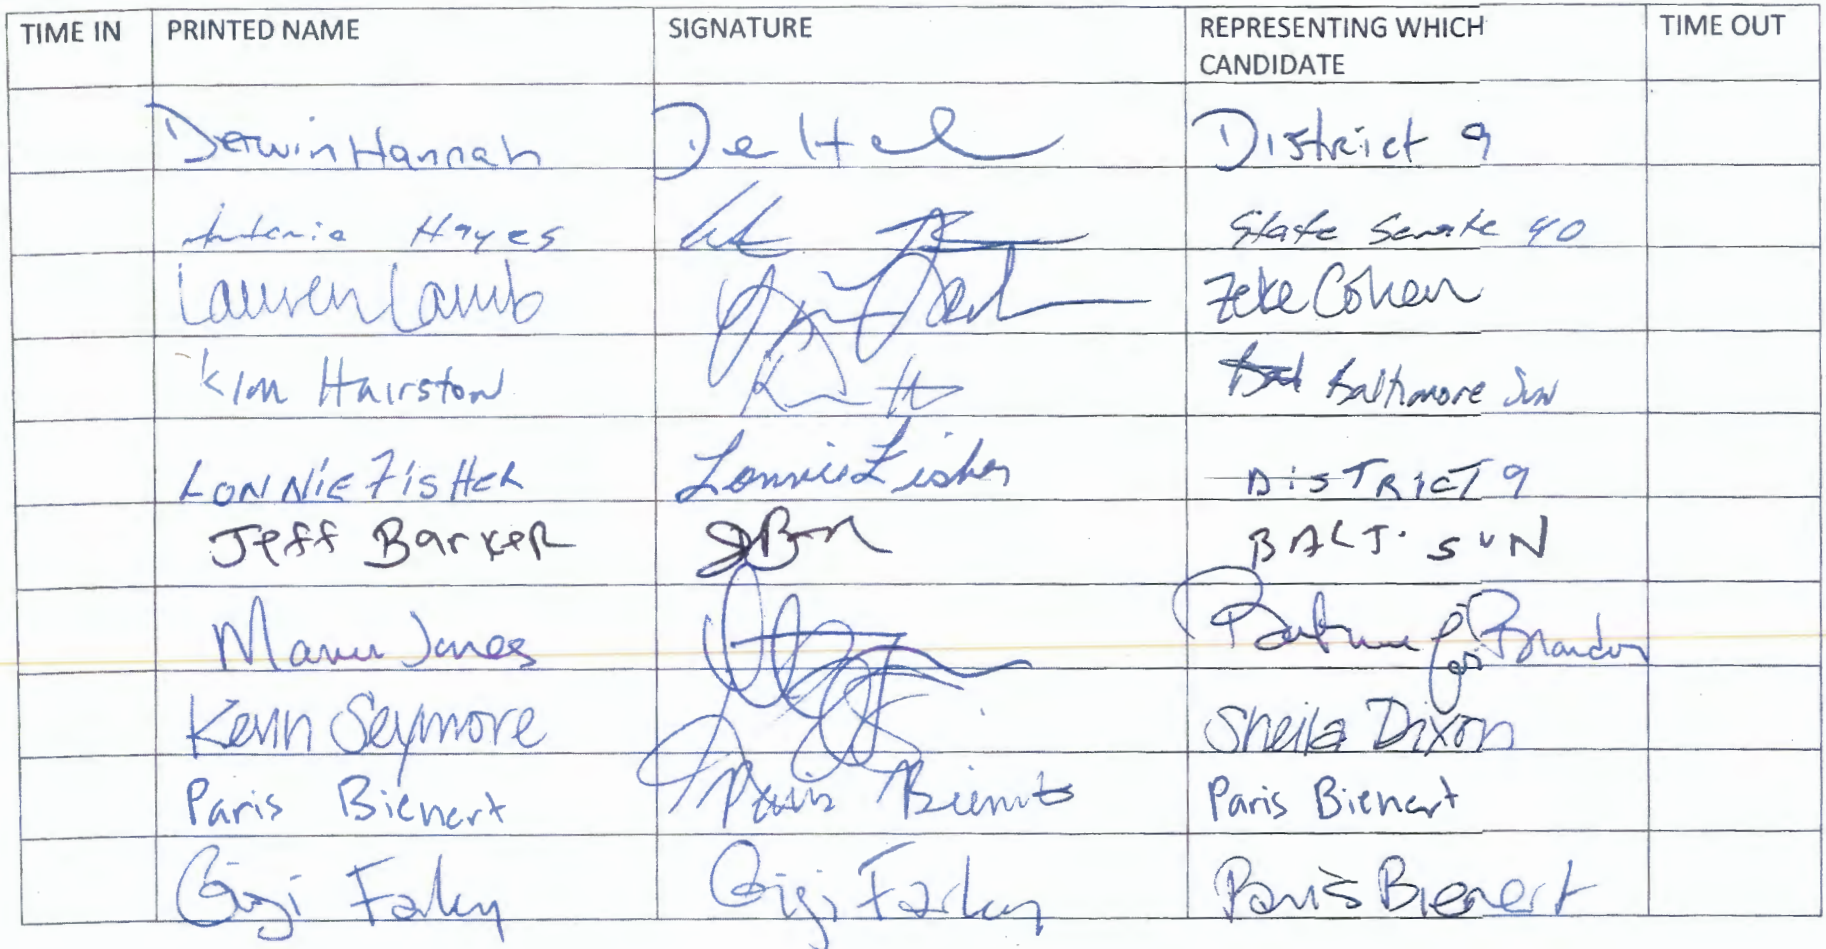 TIME IN PRINTED NAME SIGNATURE REPRESENTING WHICH CANDIDATE TIME OUT
Derwin Hannah District 9
Antonio Hayes State Senate 40
Lauren Lamb Zeke Cohen
Kim Hairston Baltimore Sun
LONNIE FISHER Lonnie Fisher DISTRICT 9
Jeff Barker BALT. SUN
Jones Brandon
Kevin Seymore Sheila Dixon
Paris Bienert Paris Paris Bienert
Gigi Gigi Paris Bienert